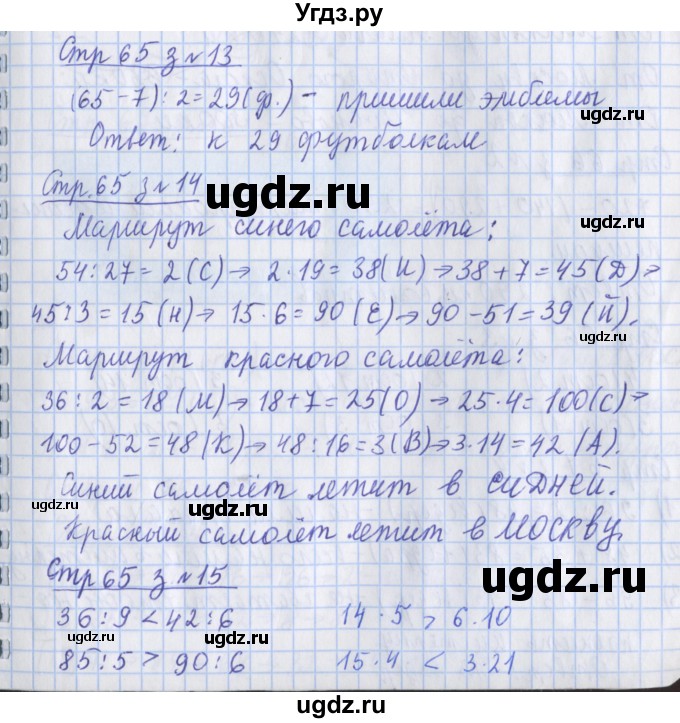 Угдз.ру
Стр 65 з №13
(65-7):2=29(ф.) - пришили эмблемы
Ответ: к 29 футболкам
Стр.65 з №14
ugdz.ru
ugdz.ru
Маршрут синего самолёта:
54:27=2(С)→ 2·19=38(И)→38+7=45(Д)→
45:3=15(н)→ 15·6=90(Е)→90-51=39(Й).
ugdz.ru
Маршрут красного самолёта:
36:2=18(М)→18+7=25(О)→25·4=100(С)→
100-52=48(К)→48:16=3(В)→3·14=42(А).
Синий самолёт летит в СИДНЕЙ.
ugdz.ru
ugdz.ru
Красный самолёт летит в МОСКВУ.
Стр 65 з №15
ugdz.ru
36:9<42:6 14·5 > 6·10
ugdz.ru
85:5>90:6 15·4 < 3·21
ugdz.ru